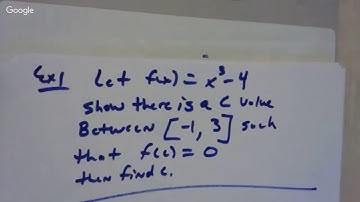 Google
Ex1 Let f(x) = x³-4
show there is a C value
Between [-1, 3] such
that f(c) = 0
then find c.